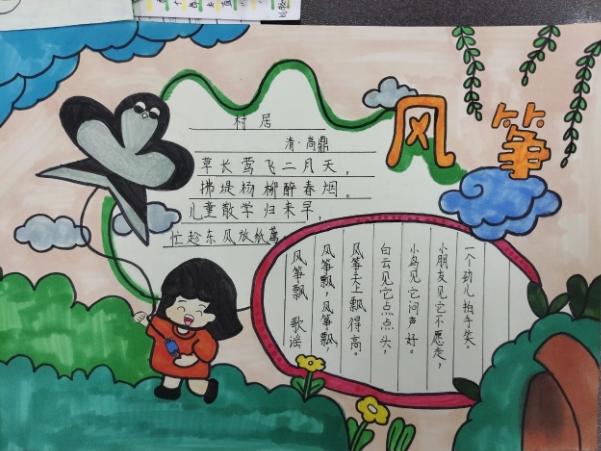 风筝
村居
清·高鼎
草长莺飞二月天，
拂堤杨柳醉春烟。
儿童散学归来早，
忙趁东风放纸鸢
风筝飘 歌谣
风筝飘，风筝飘，
风筝天上飘得高。
白云见它点点头，
小鸟见它问声好。
小朋友见它不愿走，
一个劲儿拍手笑。